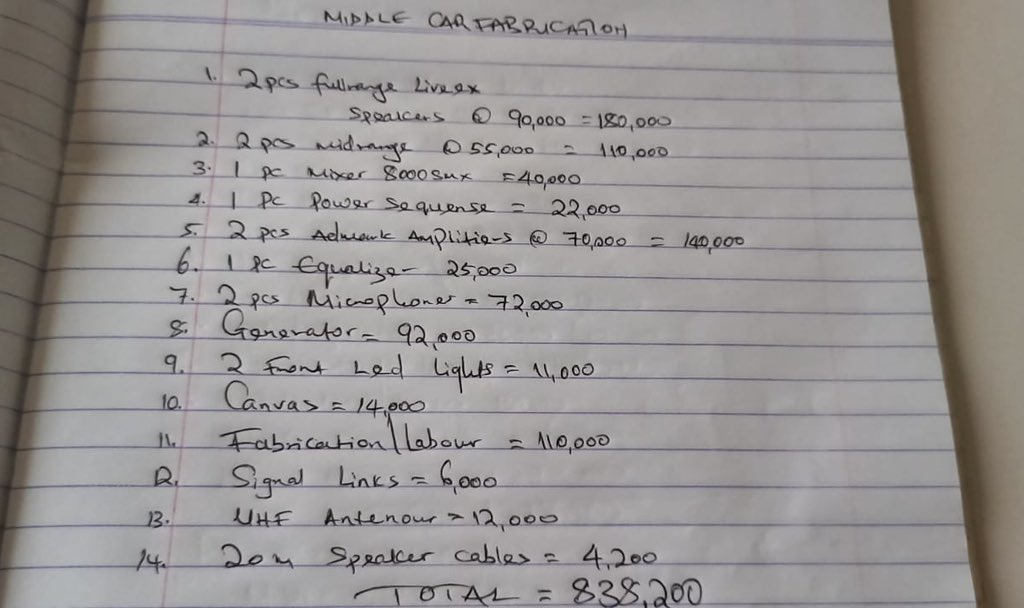 MIDDLE CAR FABRICATION
1. 2 pcs fullrange Liveex
Speakers @ 90,000 = 180,000
2. 2 pcs midrange @ 55,000 = 110,000
3. 1 pc Mixer 8000Sux = 40,000
4. 1 pc Power Sequense = 22,000
5. 2 pcs Amplifiers @ 70,000 = 140,000
6. 1 pc Equalizer - 25,000
7. 2 pcs Microphones = 72,000
8. Generator = 92,000
9. 2 Front Led lights = 11,000
10. Canvas = 14,000
11. Fabrication/labour = 110,000
12. Signal Links = 6,000
13. UHF Antenour = 12,000
14. 20m Speaker cables = 4,200
TOTAL = 838,200